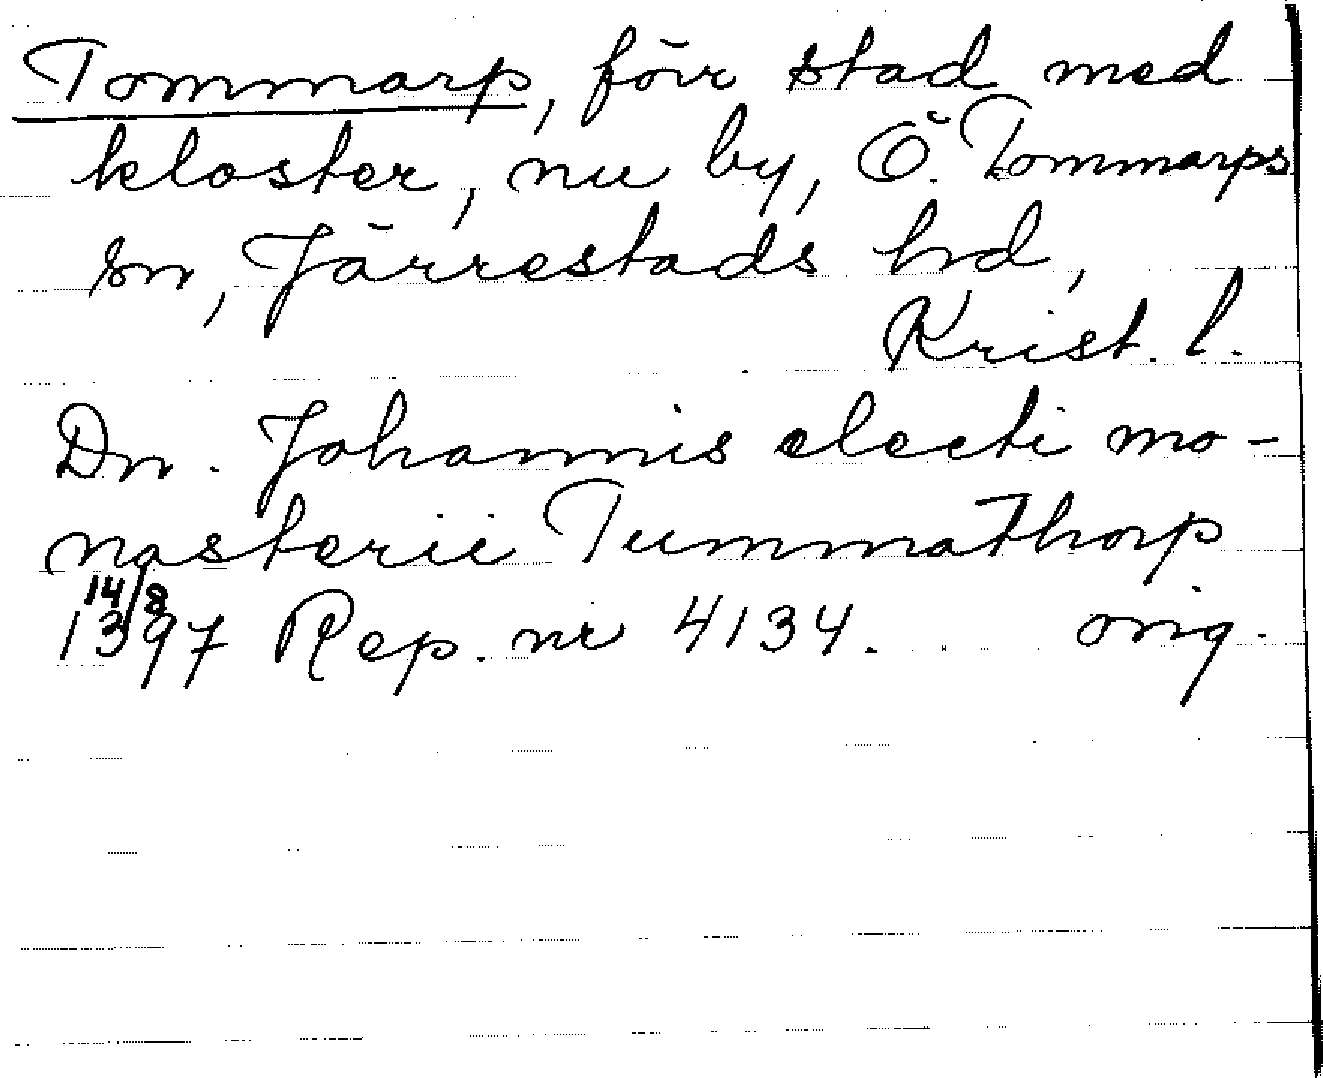 Tommarp, förr stad med
kloster, nu by, Ö. Tommarps
sn, Järrestads hd,
Krist. l.
Dn. Johannis electi mo-
nasterii Tummathorp
14/8
1397 Rep. nr 4134. orig.